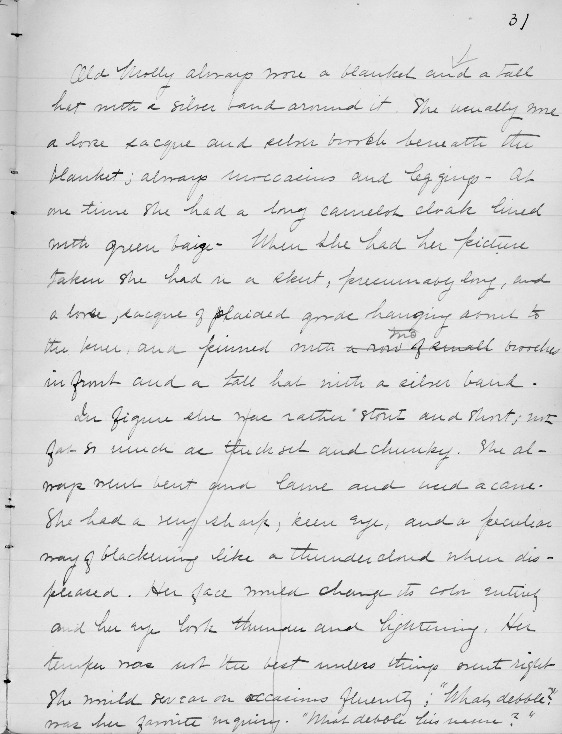 31
Old Molly always wore a blanket and a tall
hat with a silver band around it. She usually wore
a loose sacque and silver brooch beneath the
blanket; always moccasins and leggings - At
one time she had a long camelot cloak lined
with green baize - When she had her picture
taken she had on a skirt, presumably long, and
a loose, sacque of plaided goods hanging down to
the knee, and pinned with a row of small two brooches
in front and a tall hat with a silver band.
In figure she was rather stout and short; not
fat so much as thickset and chunky. She al-
ways went bent and lame and used a cane.
She had a very sharp, keen eye, and a peculiar
way of blackening like a thundercloud when dis-
pleased. Her face would change its color entirely
and her eye look thunder and lightening. Her
temper was not the best unless things went right
She would swear on occasions fluently; "What debble?"
was her favorite inquiry. "What debble his name?"